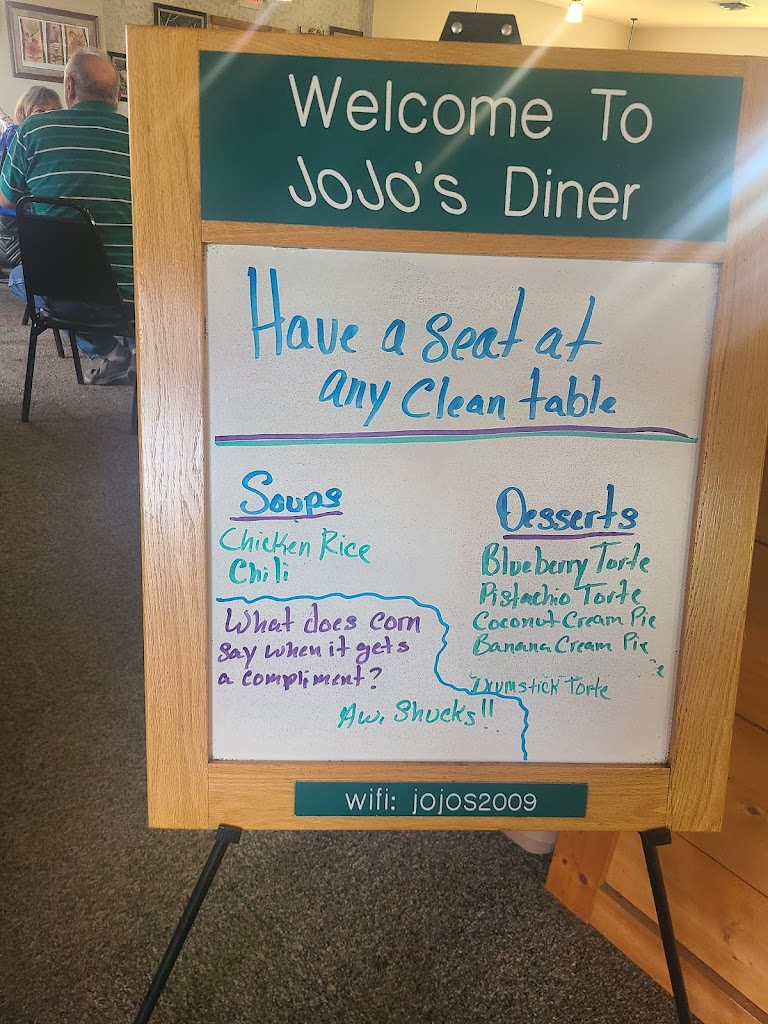 Welcome To
JoJo's Diner
Have a seat at
any Clean table
Soups
Chicken Rice
Chili
What does corn
say when it gets
a compliment?
Aw, Shucks!!
Desserts
Blueberry Torte
Pistachio Torte
Coconut Cream Pie
Banana Cream Pie
Drumstick Torte
wifi: jojos2009